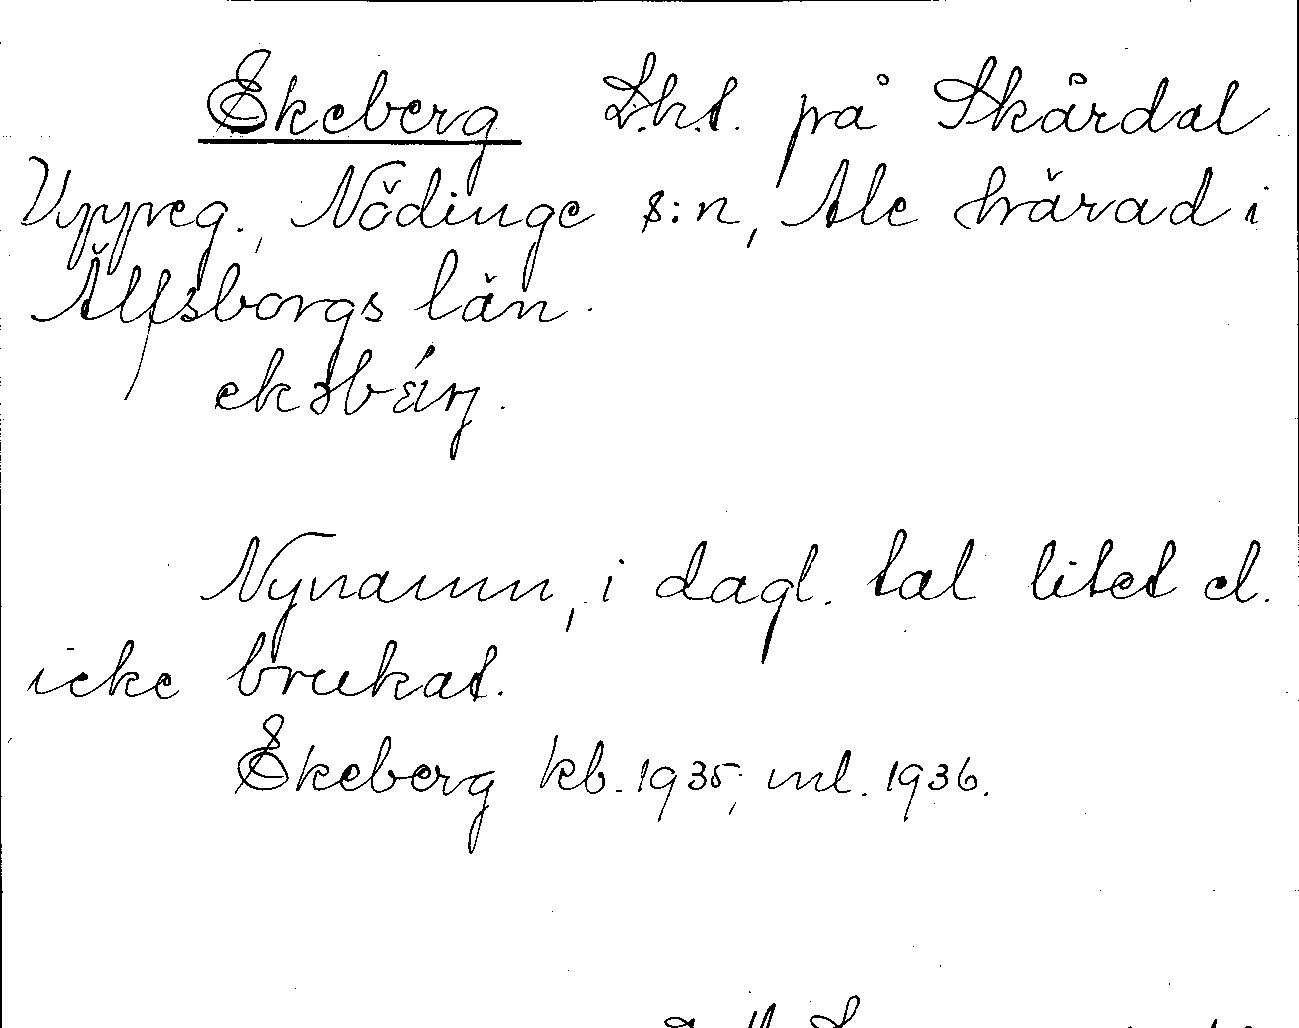 Ekeberg L.h.t. på Skårdal
Uppeg., Nödinge s:n, Ale härad i
Älfsborgs län.
ekəbǽrj.
Nynamn, i dagl. tal litet el.
icke brukat.
Ekeberg kb. 1935; ml. 1936.